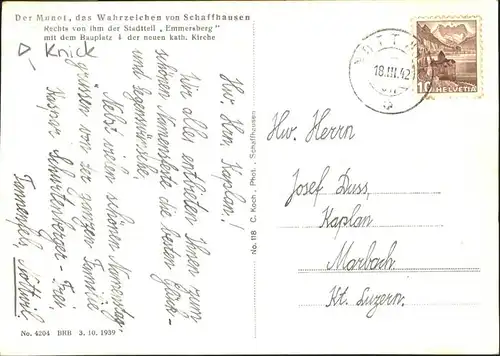 Der Munot, das Wahrzeichen von Schaffhausen
Rechts von ihm der Stadtteil „Emmersberg"
mit dem Bauplatz ↓ der neuen kath. Kirche
▷ Knick
Hw. Hrn. Kaplan!
Wir alle entbieten Ihnen zum
schönen Namensfeste die besten Glück-
und Segenwünsche.
Nebst vielen schönen Namenstag-
grüssen von der ganzen Familie
Kaspar Schürtenberger-Frei,
Tannenfels, Nottwil
No. 118 C. Koch, Phot., Schaffhausen
18.III.42
10 HELVETIA
Hw. Herrn
Josef Duss,
Kaplan
Marbach
Kt. Luzern.
No. 4204 BRB 3. 10. 1939